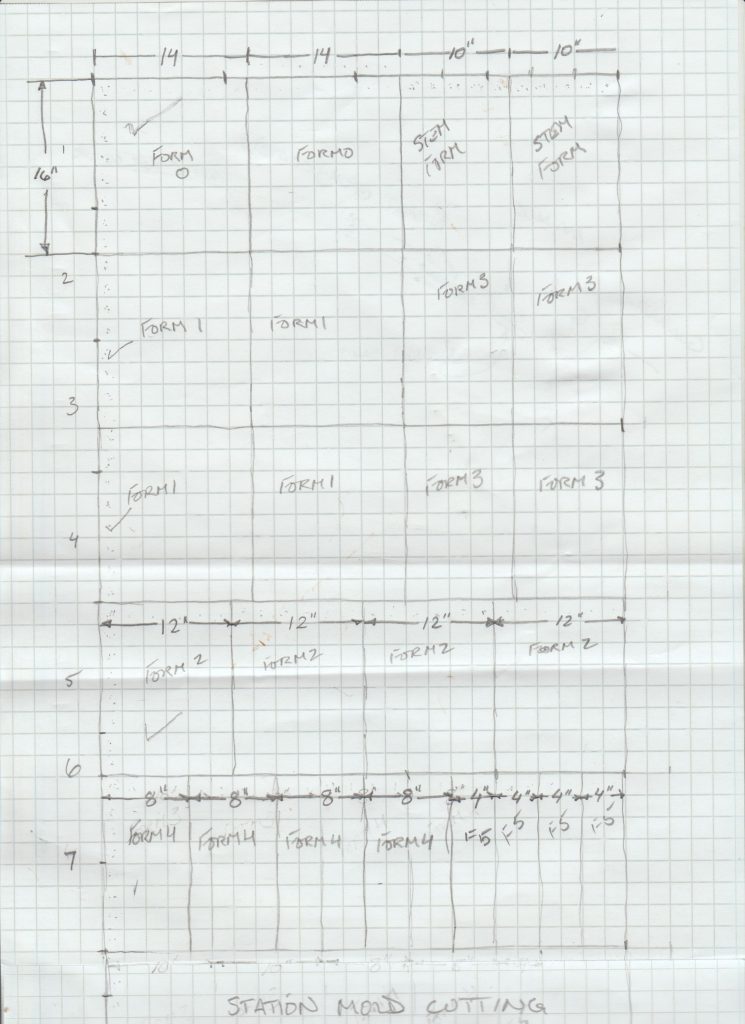 14 14 10" 10"
1
16"
FORM 0 FORM 0 STEM FORM STEM FORM
2
FORM 3 FORM 3
FORM 1 FORM 1
3
FORM 1 FORM 1 FORM 3 FORM 3
4
12" 12" 12" 12"
FORM 2 FORM 2 FORM 2 FORM 2
5
6
8" 8" 8" 8" 4" 4" 4" 4"
FORM 4 FORM 4 FORM 4 FORM 4 F5 F5 F5 F5
7
STATION MOLD CUTTING